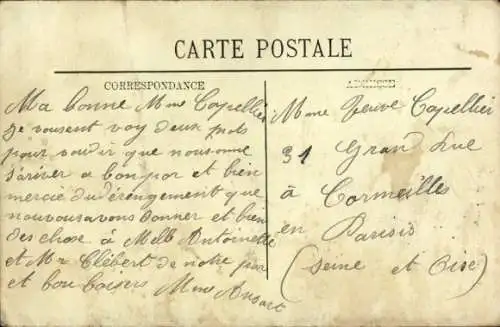 CARTE POSTALE
CORRESPONDANCE
ADRESSE
Ma bonne Mme Capellier
Je vousent voy deux mots
pour voudir que nousomme
s'ariver a bon por et bien
mercie du dérengement que
nouvousavons donner et bien
des chose à Melle Antoinette
et Mr Clébert de notre par
et bon baisers Mme Ansart
Mme Veuve Capellier
31 Grand Rue
à Cormeilles
en Parisis
(Seine et Oise)